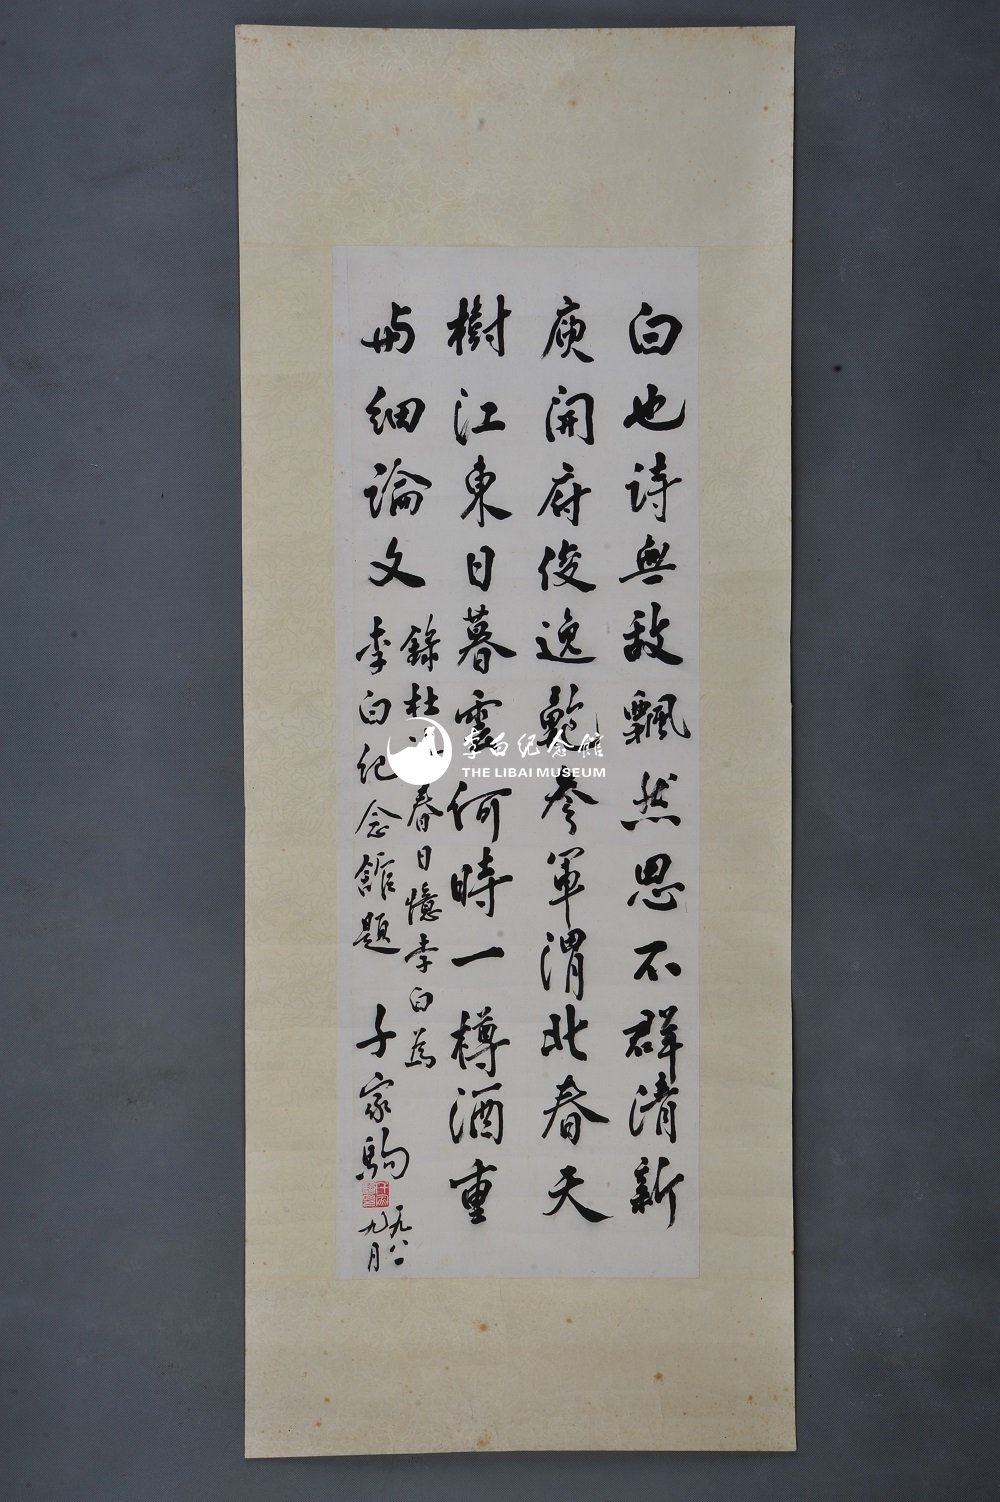 白也詩無敌飄然思不群清新
庾開府俊逸鮑參軍渭北春天
樹江東日暮雲何時一樽酒重
與細論文
錄杜甫春日憶李白為
李白纪念館題
于家駒
一九八一
九月
李白纪念館
THE LIBAI MUSEUM